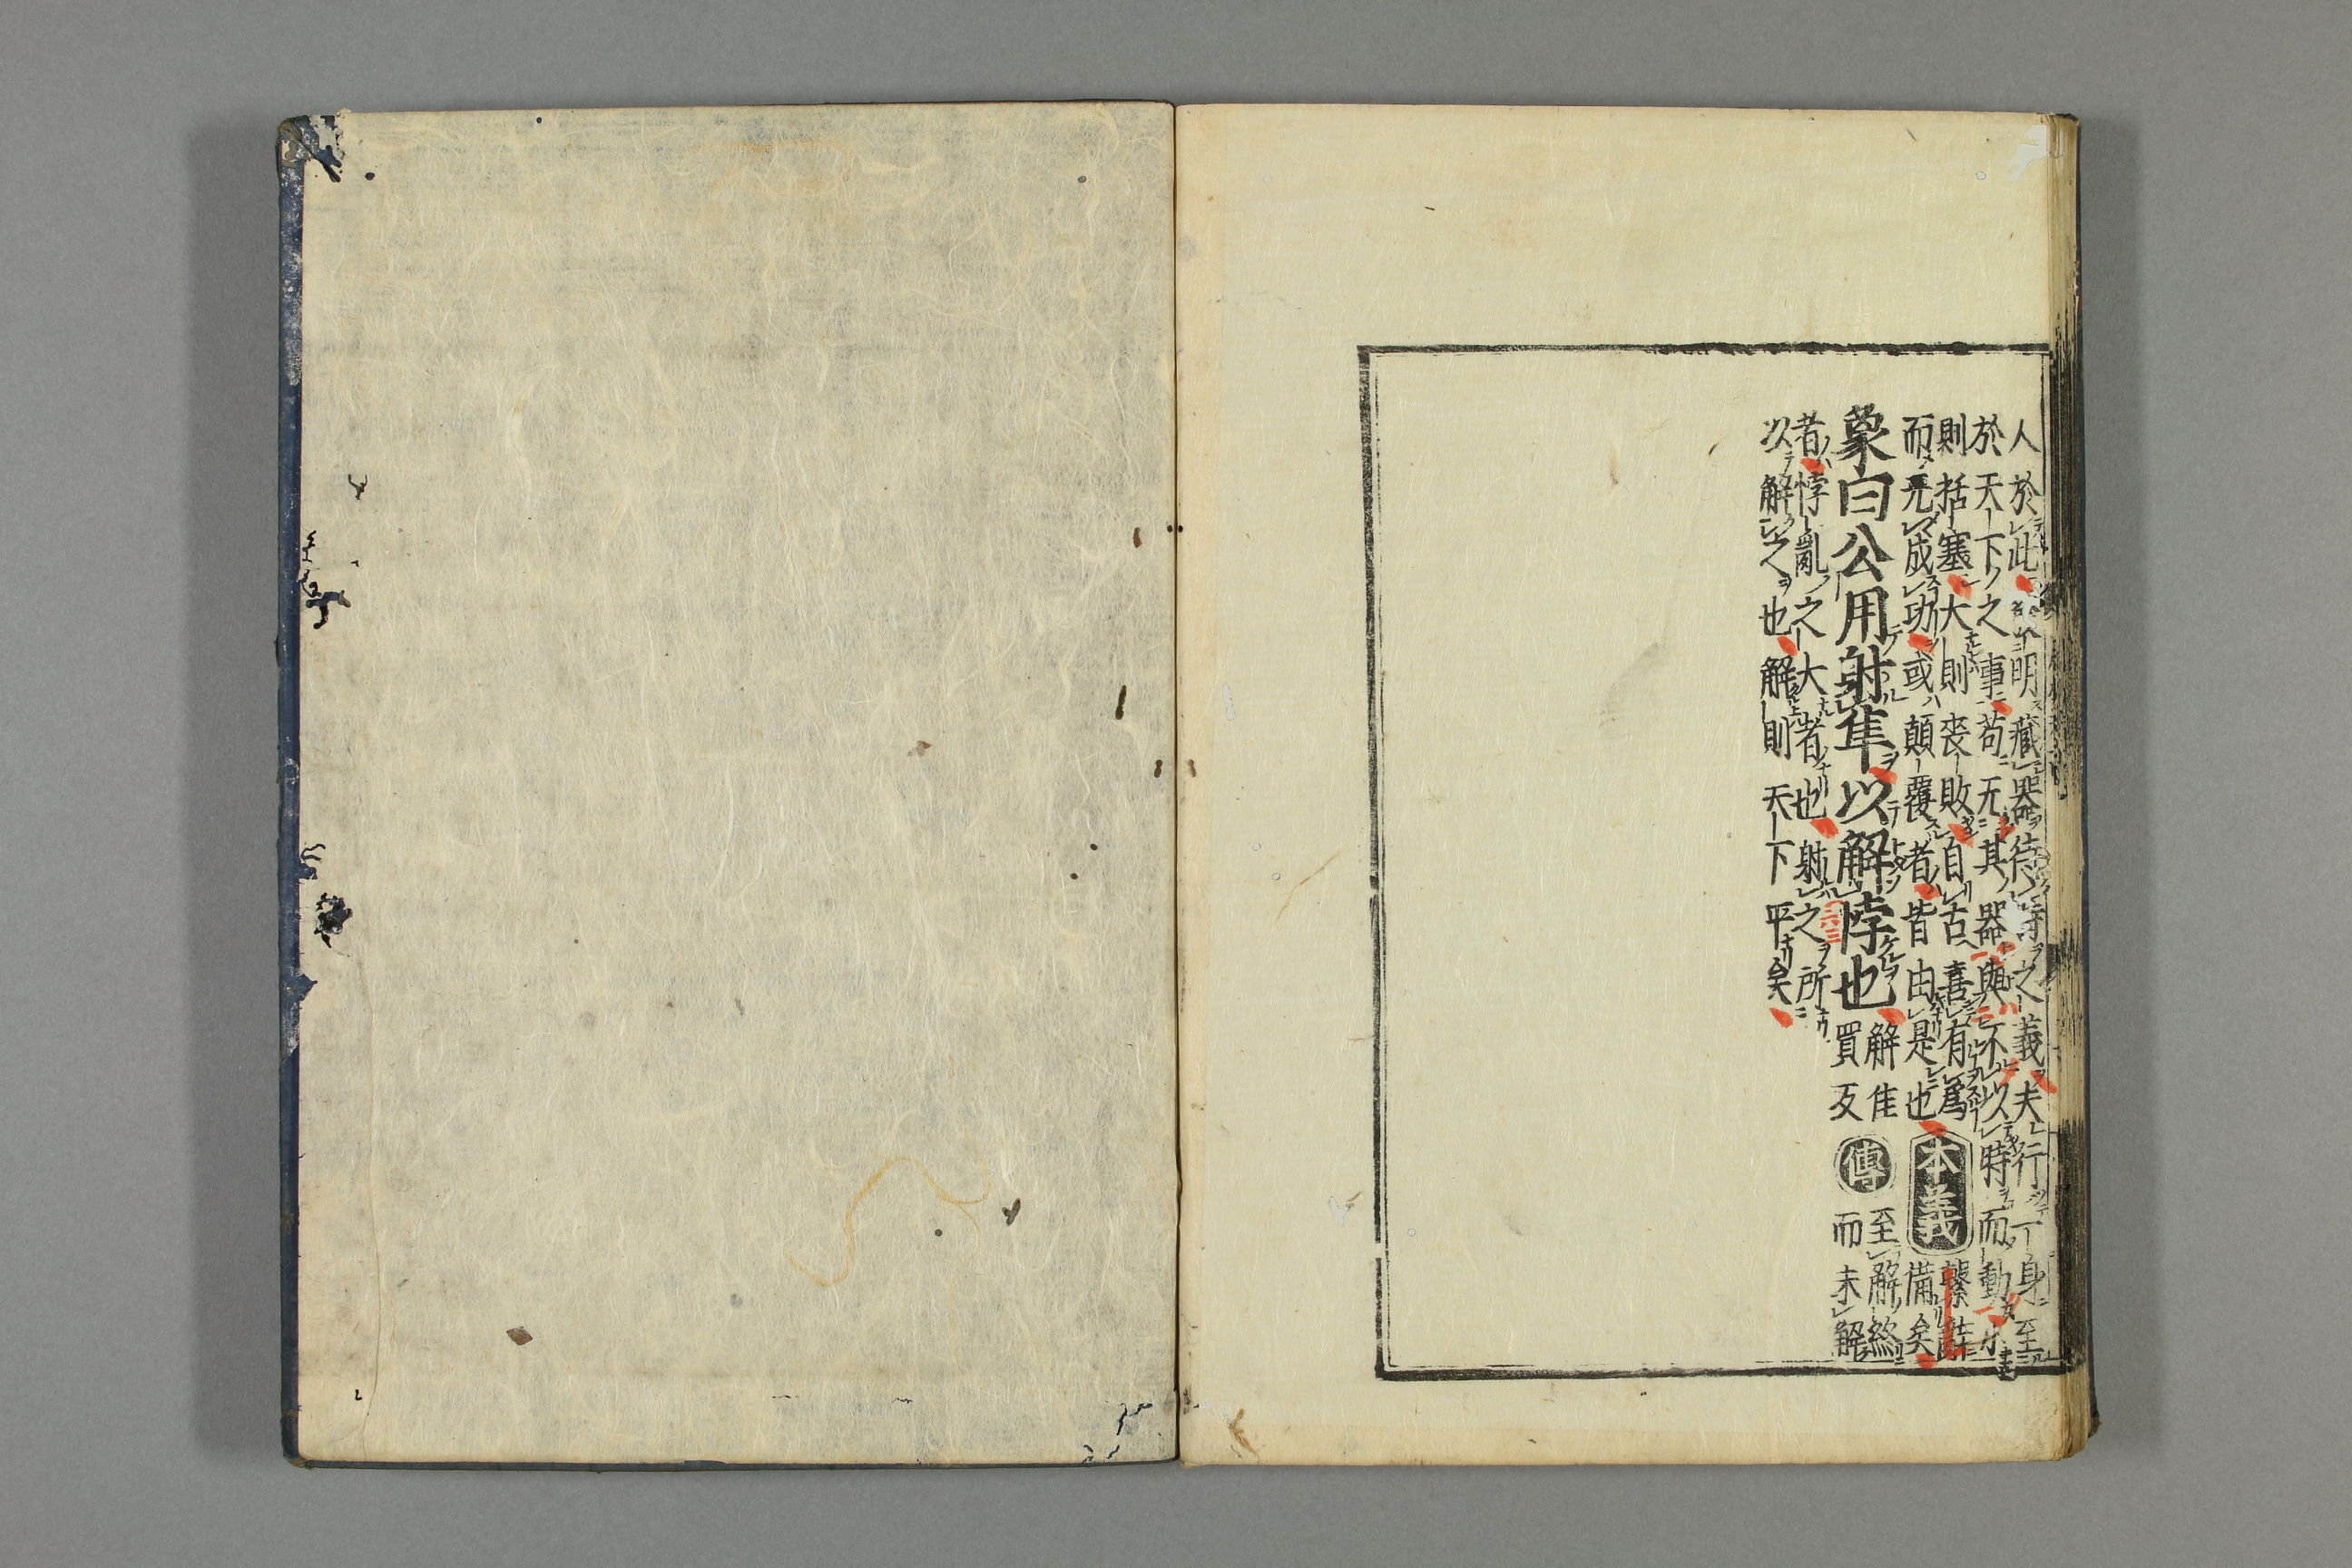 人於此發明藏器待時之義夫行一身至
於天下之事苟无其器與不以時而動小
則括塞大則喪敗自古喜有爲本義繫辭
而无成功或顛覆者皆由是也備矣
象曰公用射隼以解悖也解佳買反傳至解終而未解
者悖亂之大者也射之所
以解之也解則天下平矣